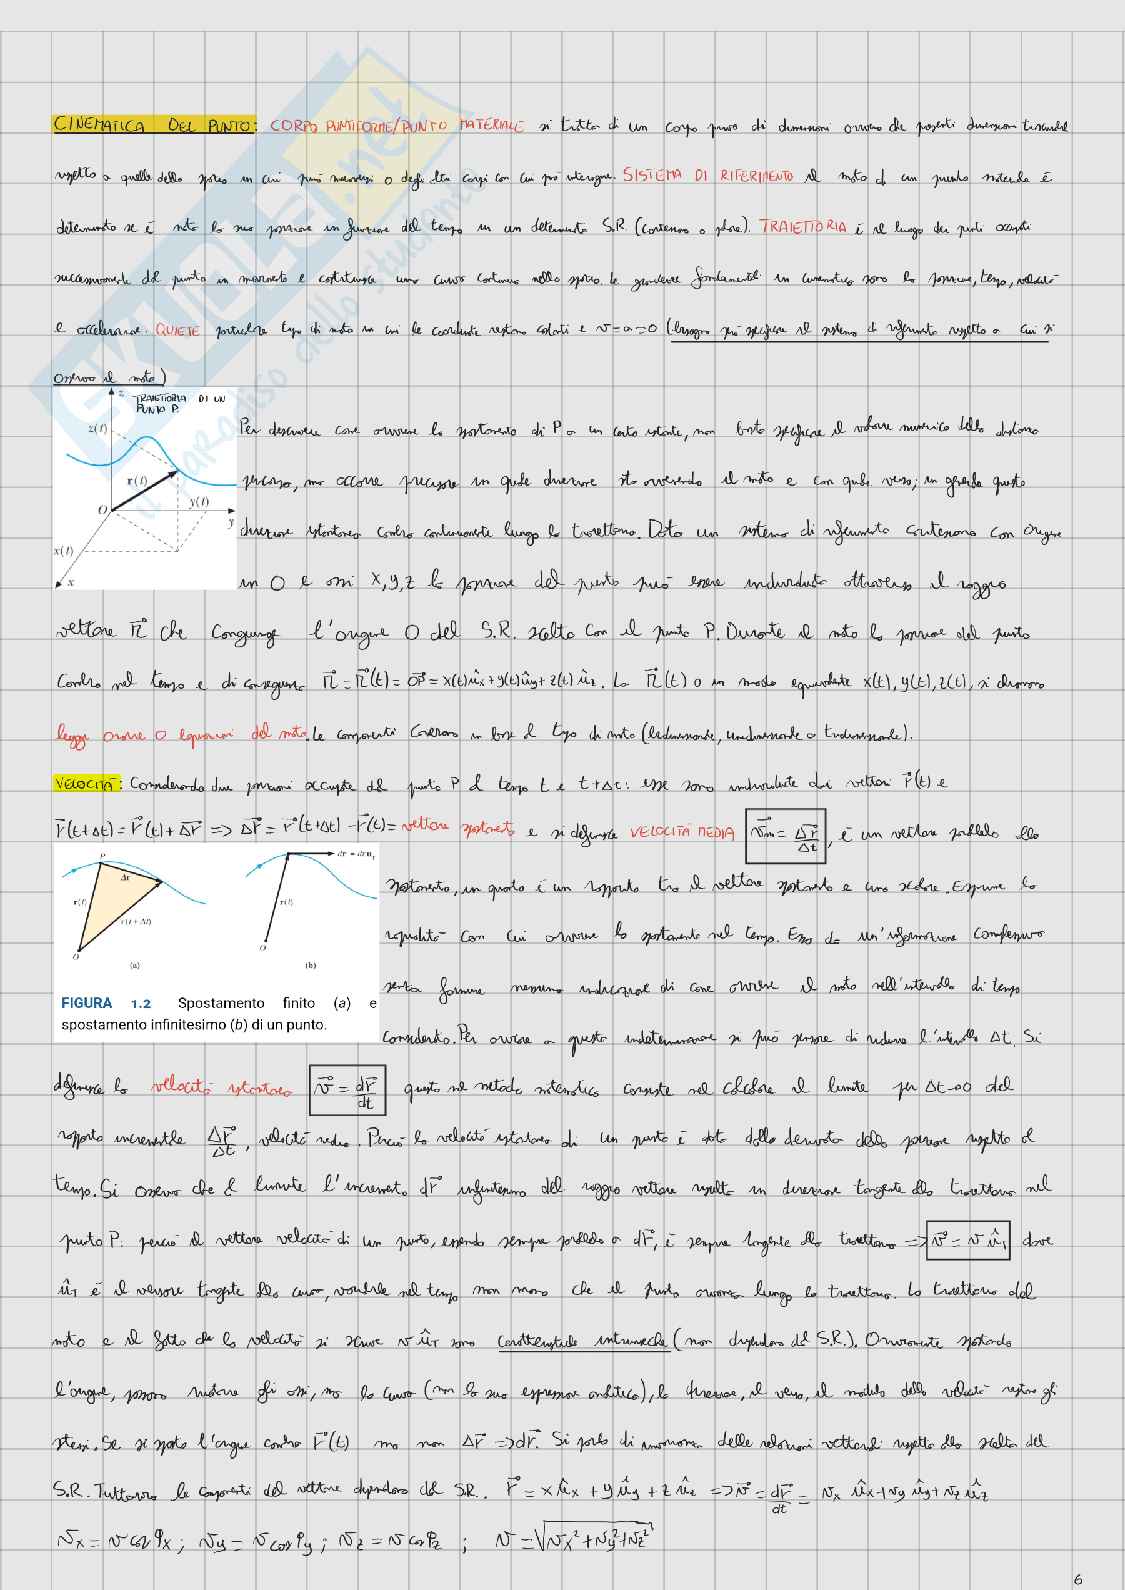 CINEMATICA DEL PUNTO: CORPO PUNTIFORME/PUNTO MATERIALE si tratta di un corpo privo di dimensioni ovvero che presenti dimensioni trascurabili
rispetto a quelle dello spazio in cui può muoversi o degli altri corpi con cui può interagire. SISTEMA DI RIFERIMENTO il moto di un punto materiale è
determinato se è nota la sua posizione in funzione del tempo in un determinato S.R. (cartesiano o polare). TRAIETTORIA è il luogo dei punti occupati
successivamente dal punto in movimento e costituisce una curva continua nello spazio. Le grandezze fondamentali in cinematica sono lo spazio, tempo, velocità
e accelerazione. QUIETE particolare tipo di moto in cui le coordinate restano costanti e v=a=0 (bisogna poi specificare il sistema di riferimento rispetto a cui si
osserva il moto)
TRAIETTORIA DI UN PUNTO P.
z
z(t)
r(t)
O
y(t)
y
x(t)
x
Per descrivere come avviene lo spostamento di P a un certo istante, non basta specificare il valore numerico della distanza
percorsa, ma occorre precisare in quale direzione sta avvenendo il moto e con quale verso; in generale questa
direzione istantanea cambia continuamente lungo la traiettoria. Dato un sistema di riferimento cartesiano con origine
in O e assi x,y,z la posizione del punto può essere individuata attraverso il raggio
vettore r⃗ che congiunge l'origine O del S.R. scelto con il punto P. Durante il moto la posizione del punto
cambia nel tempo e di conseguenza r⃗ = r⃗(t) = OP⃗ = x(t)ûx+y(t)ûy+z(t)ûz. La r⃗(t) o in modo equivalente x(t), y(t), z(t), si chiamano
leggi orarie o equazioni del moto. Le componenti variano in base al tipo di moto (bidimensionale, unidimensionale o tridimensionale).
VELOCITÀ: Considerando due posizioni occupate dal punto P al tempo t e t+Δt: esse sono individuate dai vettori r⃗(t) e
r⃗(t+Δt) = r⃗(t)+Δr⃗ => Δr⃗ = r⃗(t+Δt) - r⃗(t) = vettore spostamento e si definisce VELOCITÀ MEDIA v⃗m = Δr⃗/Δt, è un vettore parallelo allo
P
Δr
r(t)
r(t + Δt)
O
(a)
dr = dr uT
r(t)
O
(b)
FIGURA 1.2 Spostamento finito (a) e
spostamento infinitesimo (b) di un punto.
spostamento, in quanto è un rapporto tra il vettore spostamento e uno scalare. Esprime la
rapidità con cui avviene lo spostamento nel tempo. Essa dà un'informazione complessiva
senza fornire nessuna indicazione di come avviene il moto nell'intervallo di tempo
considerato. Per ovviare a questa indeterminazione si può pensare di ridurre l'intervallo Δt. Si
definisce la velocità istantanea v⃗ = dr⃗/dt questo nel metodo matematico consiste nel calcolare il limite per Δt→0 del
rapporto incrementale Δr⃗/Δt, velocità media. Perciò la velocità istantanea di un punto è data dalla derivata della posizione rispetto al
tempo. Si osserva che al limite l'incremento dr⃗ infinitesimo del raggio vettore risulta in direzione tangente alla traiettoria nel
punto P. perciò il vettore velocità di un punto, essendo sempre parallelo a dr⃗, è sempre tangente alla traiettoria => v⃗ = v ûT dove
ûT è il versore tangente alla curva, variabile nel tempo man mano che il punto avanza lungo la traiettoria. La traiettoria del
moto e il fatto che la velocità si scrive v ûT sono caratteristiche intrinseche (non dipendono dal S.R.). Ovviamente spostando
l'origine, possono ruotare gli assi, ma la curva (non la sua espressione analitica), la direzione, il verso, il modulo della velocità restano gli
stessi. Se si sposta l'origine cambia r⃗(t) ma non Δr⃗ => dr⃗. Si parla di invarianza delle relazioni vettoriali rispetto alla scelta del
S.R. Tuttavia le componenti del vettore dipendono dal S.R. r⃗ = x ûx + y ûy + z ûz => v⃗ = dr⃗/dt = vx ûx+vy ûy+vz ûz
vx = v cosφx ; vy = v cosφy ; vz = v cosφz ; v = √(vx²+vy²+vz²)
6
SKUOLA.net
il paradiso dello studente